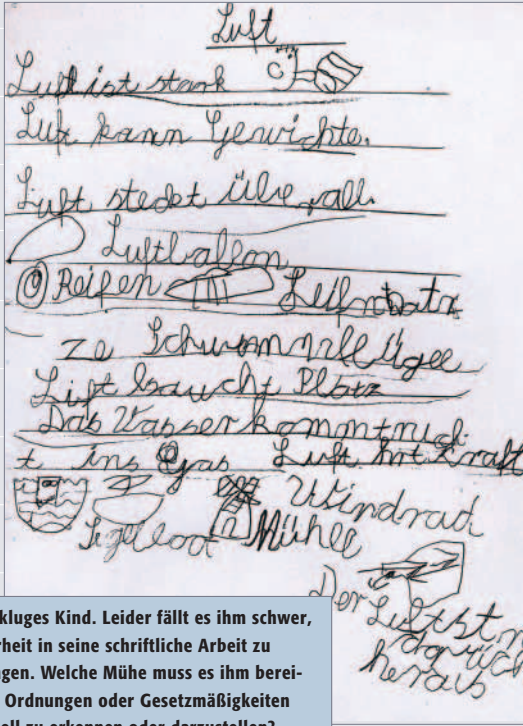 Luft
Luft ist stark
Luft kann Gewichte.
Luft stecket überall.
Luftballon
Reifen
ze Schwimmflügel
Luft braucht Platz
Das Wasser kommt nich
t ins Glas Luft hat Kraft
Windrad
Segelboot Mühle
Der Luftst
heraus
kluges Kind. Leider fällt es ihm schwer,
rheit in seine schriftliche Arbeit zu
ngen. Welche Mühe muss es ihm berei-
Ordnungen oder Gesetzmäßigkeiten
ell zu erkennen oder darzustellen?